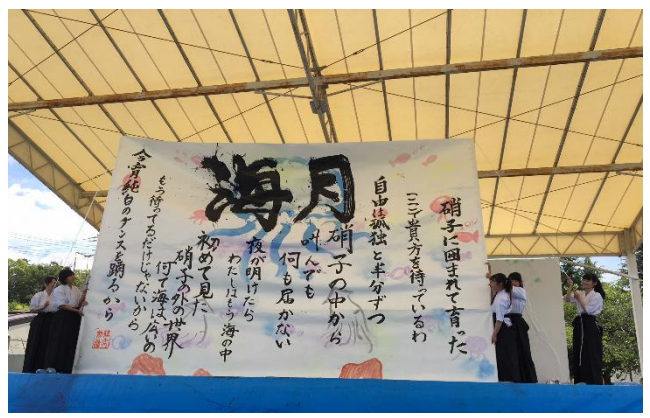 海月
硝子に囲まれて育った
ここで貴方を待っているわ
自由は孤独と半分ずつ
硝子の中から
叫んでも
何も届かない
夜が明けたら
わたしはもう海の中
初めて見た
硝子の外の世界
何て海は広いの
もう待ってるだけじゃないから
今宵純白のダンスを踊るから